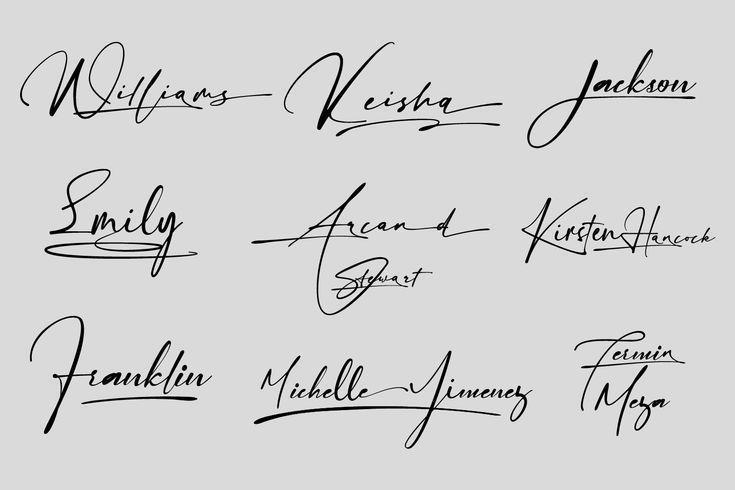 Williams
Keisha
Jackson
Emily
Arcand
Stewart
Kirsten Hancock
Franklin
Michelle Yimenez
Fermin
Meza